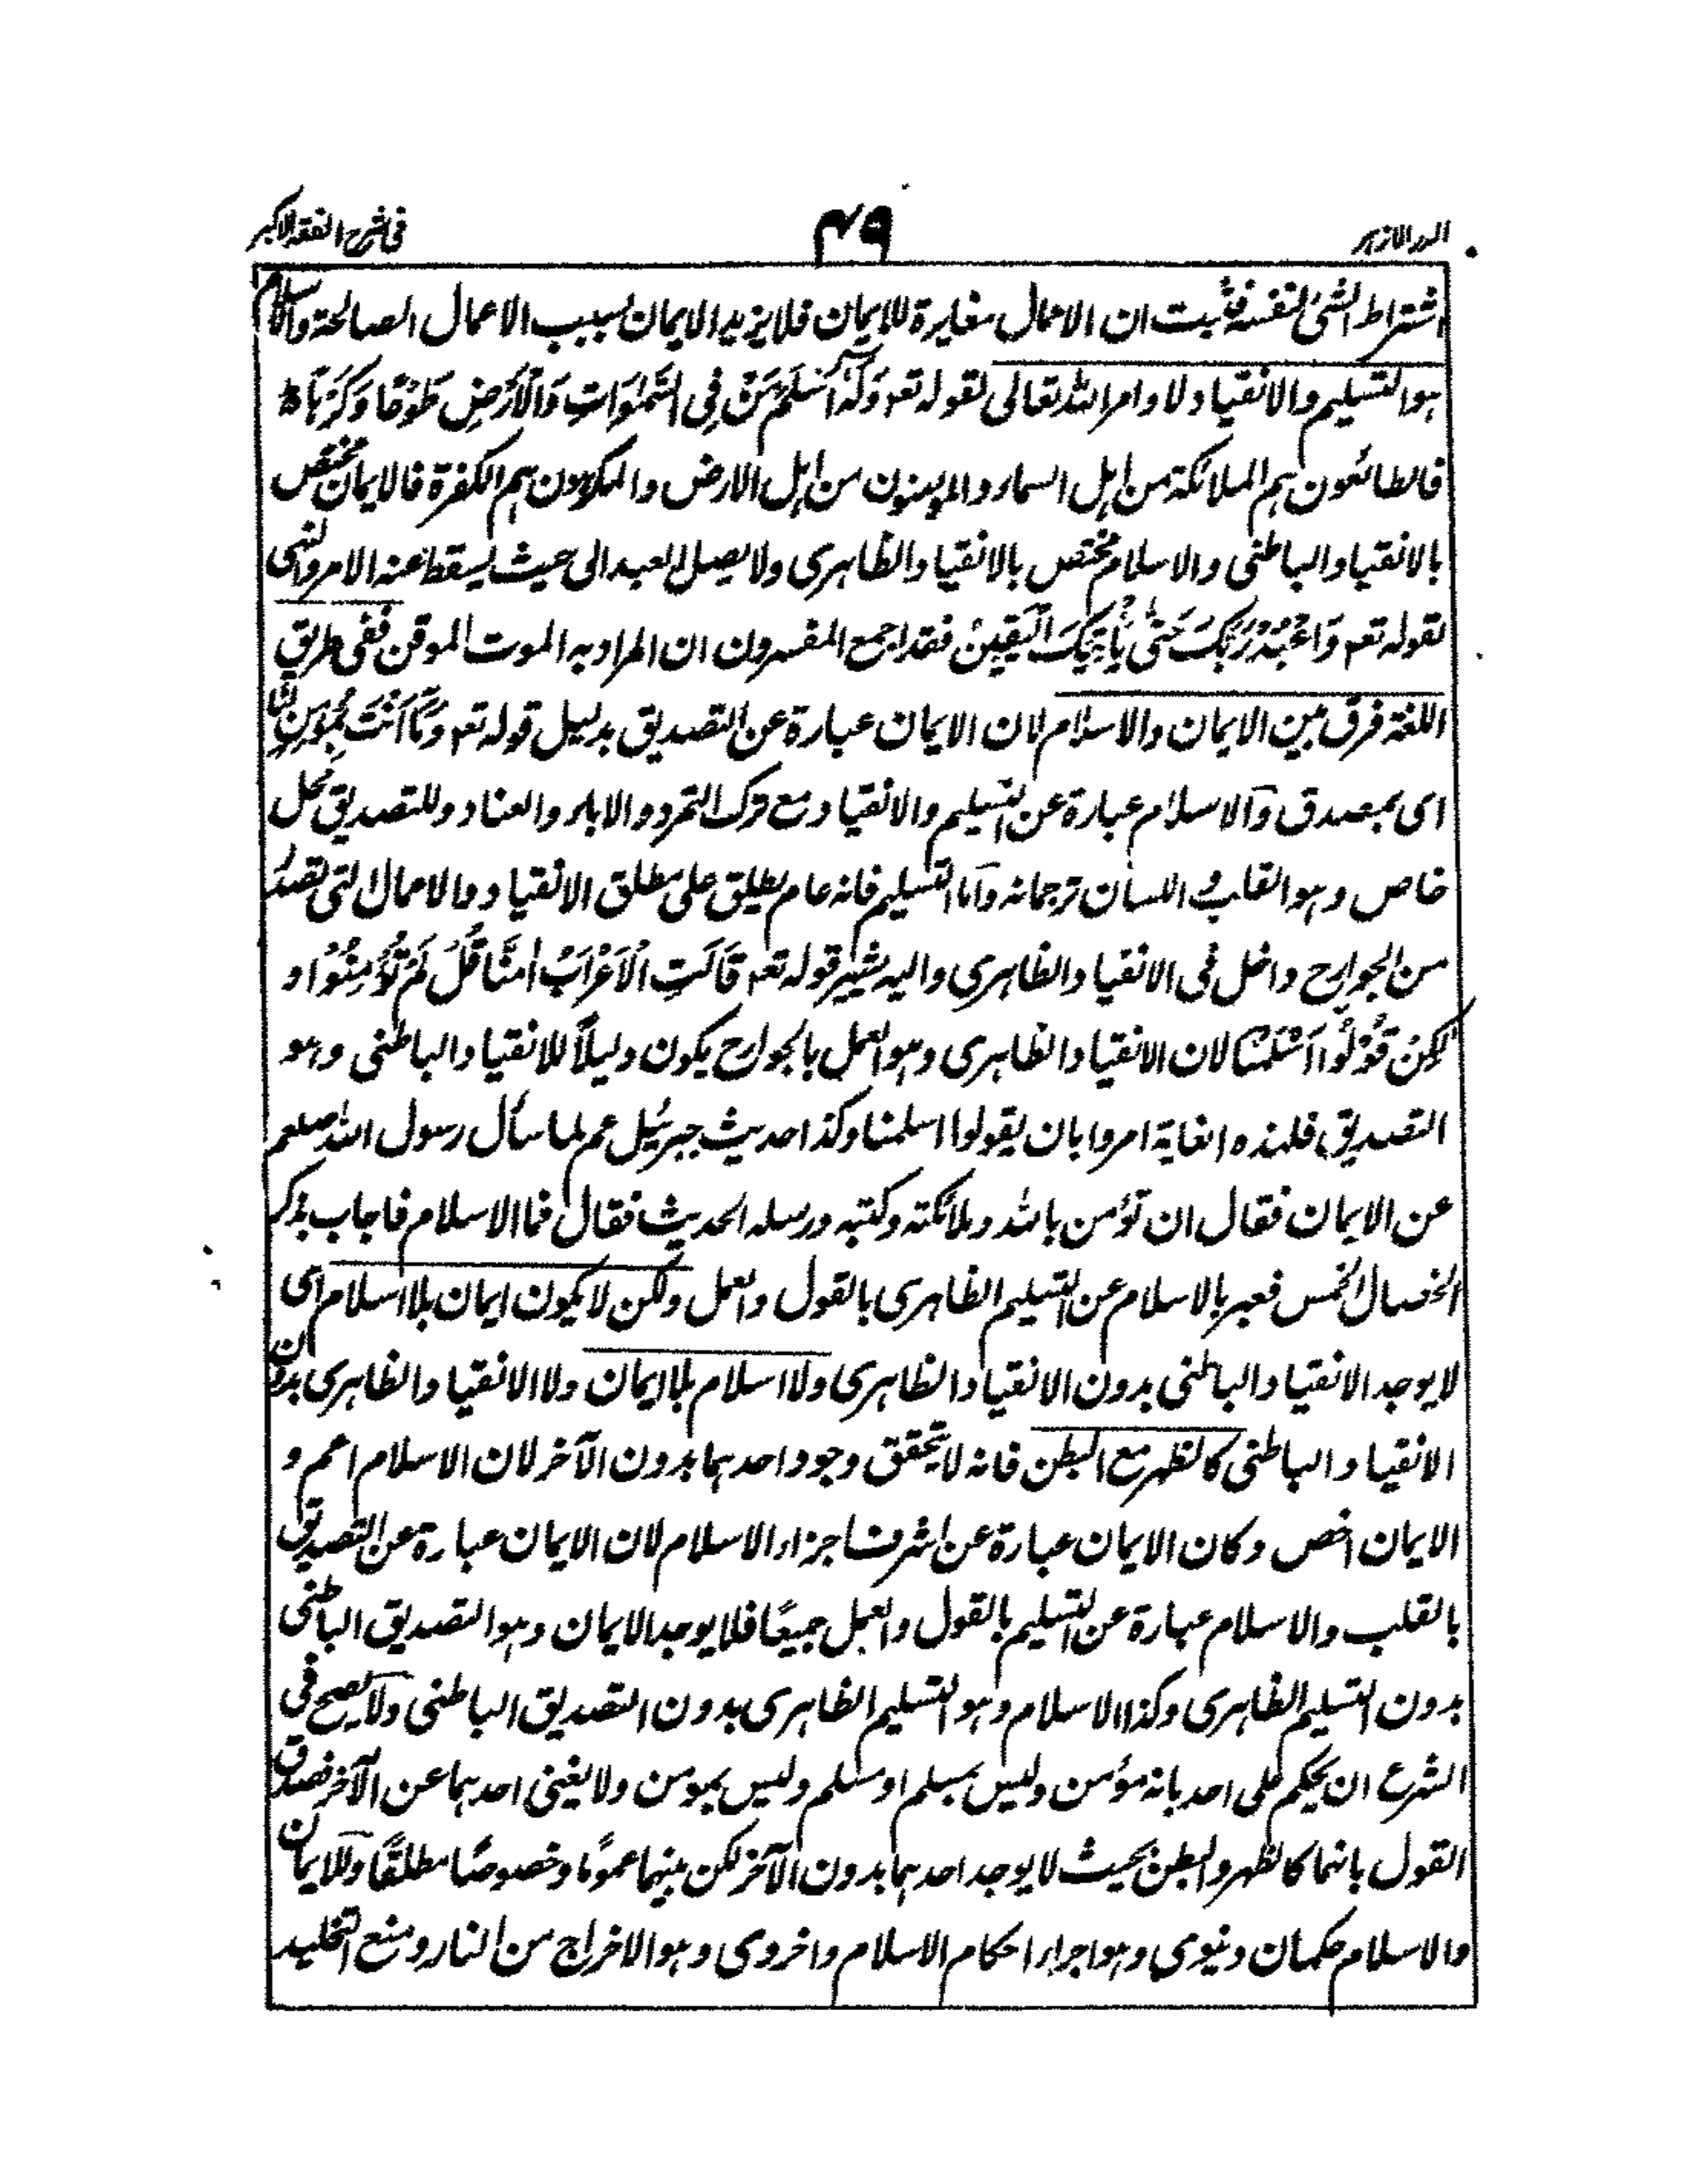 الدر الازہر
۴۹
فی شرح الفقہ الاکبر
اشتراط الشئ لنفسہ فثبت ان الاعمال مغایرة للایمان فلا یزید الایمان بسبب الاعمال الصالحة والاسلام
ہو التسلیم والانقیاد لاوامر اللہ تعالی لقولہ تعہ وَلَہٗ اَسْلَمَ مَنْ فِی السَّمٰوَاتِ وَالْاَرْضِ طَوْعًا وَّكَرْہًا ط
فالطائعون ہم الملائکة من اہل السماء والمومنون من اہل الارض والمکرہون ہم الکفرة فالایمان مختص
بالانقیاد الباطنی والاسلام مختص بالانقیاد الظاہری ولا یصل العبد الی حیث یسقط عنہ الامر والنہی
لقولہ تعہ وَاعْبُدْ رَبَّكَ حَتّٰی یَأْتِیَكَ الْیَقِیْنُ فقد اجمع المفسرون ان المراد بہ الموت الموقن ففی طریق
اللغة فرق بین الایمان والاسلام لان الایمان عبارة عن التصدیق بدلیل قولہ تعہ وَمَا اَنْتَ بِمُؤْمِنٍ لَّنَا
ای بمصدق وَالاسلام عبارة عن التسلیم والانقیاد مع ترک التمرد والاباء والعناد وللتصدیق محل
خاص وہو القلب واللسان ترجمانہ وَاما التسلیم فانہ عام یطلق علی مطلق الانقیاد والاعمال التی تصدر
من الجوارح داخل فی الانقیاد الظاہری والیہ یشیر قولہ تعہ قَالَتِ الْاَعْرَابُ اٰمَنَّا قُلْ لَمْ تُؤْمِنُوْا و
لٰكِنْ قُوْلُوْا اَسْلَمْنَا لان الانقیاد الظاہری وہو العمل بالجوارح یکون دلیلاً للانقیاد الباطنی وہو
التصدیق فلہذہ الغایة امروا بان یقولوا اسلمنا وکذا حدیث جبرئیل عم لما سأل رسول اللہ صلعم
عن الایمان فقال ان تؤمن باللہ وملائکتہ وکتبہ ورسلہ الحدیث فقال فما الاسلام فاجاب بذکر
الخصال الخمس فعبر بالاسلام عن التسلیم الظاہری بالقول والعمل ولکن لا یکون ایمان بلا اسلام ای
لا یوجد الانقیاد الباطنی بدون الانقیاد الظاہری ولا اسلام بلا ایمان ولا الانقیاد الظاہری بدون
الانقیاد الباطنی کالظہر مع البطن فانہ لا یتحقق وجود احدہما بدون الآخر لان الاسلام اعم و
الایمان اخص وکان الایمان عبارة عن اشرف اجزاء الاسلام لان الایمان عبارة عن التصدیق
بالقلب والاسلام عبارة عن التسلیم بالقول والعمل جمیعًا فلا یوجد الایمان وہو التصدیق الباطنی
بدون التسلیم الظاہری وکذا الاسلام وہو التسلیم الظاہری بدون التصدیق الباطنی ولا یصح فی
الشرع ان یحکم علی احد بانہ مؤمن ولیس بمسلم او مسلم ولیس بمومن ولا یغنی احدہما عن الآخر فصدق
القول بانہما کالظہر والبطن بحیث لا یوجد احدہما بدون الآخر لکن بینہما عمومًا وخصوصًا مطلقًا وللایمان
والاسلام حکمان دنیوی وہو اجراء احکام الاسلام واخروی وہو الاخراج من النار ومنع التخلید